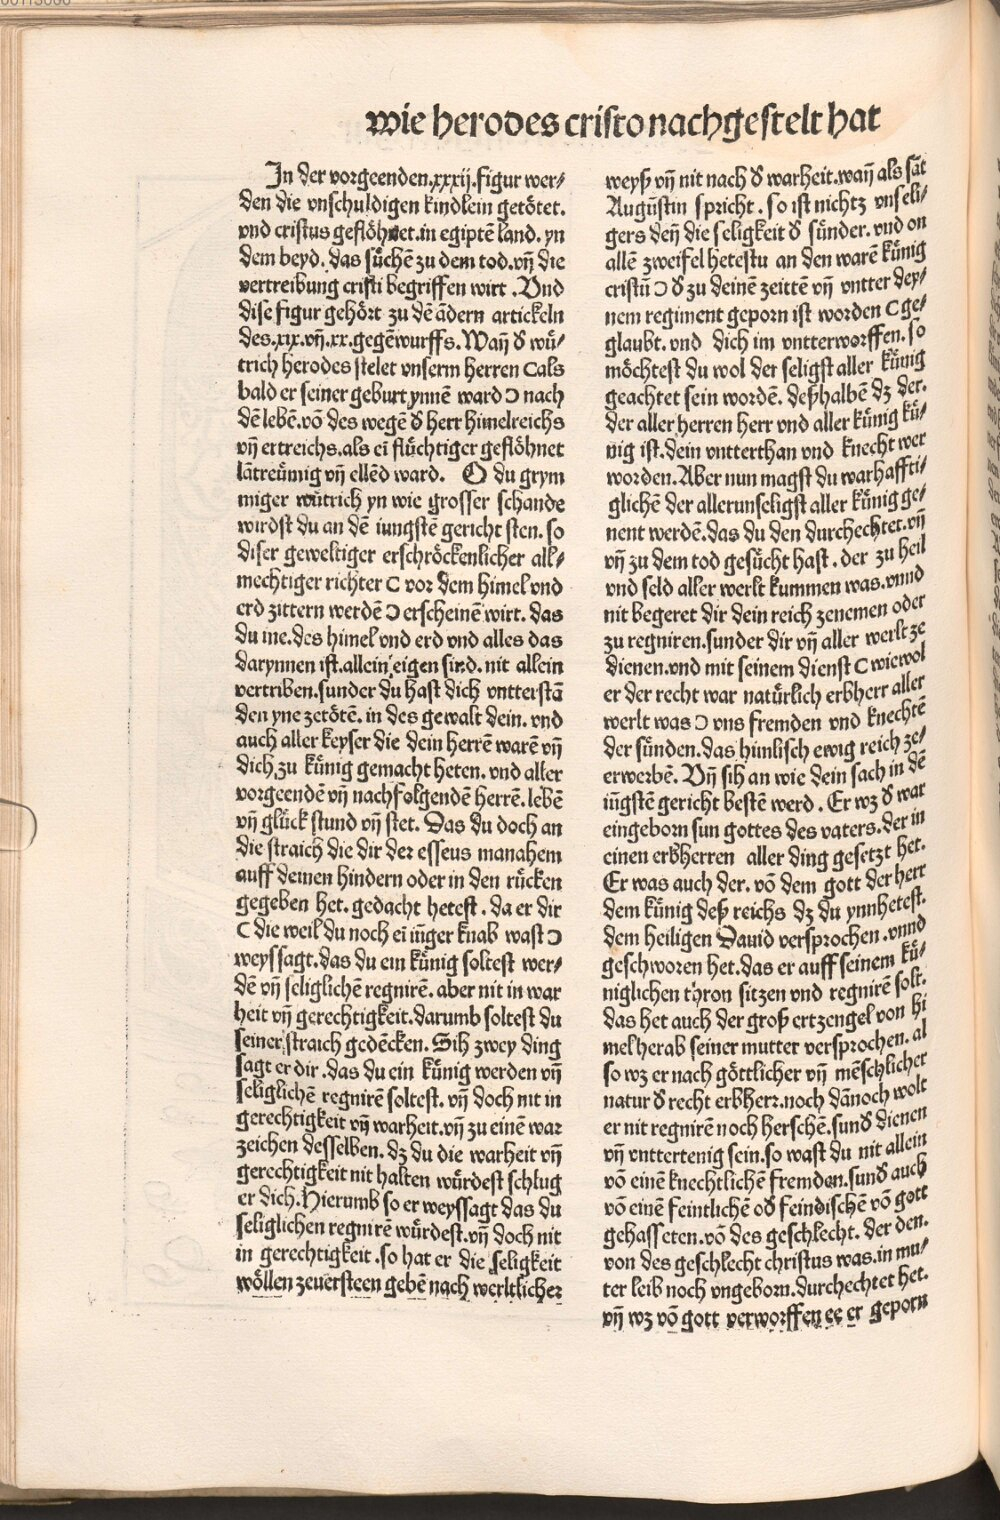 wie herodes cristo nachgestelt hat
In der vorgeenden.xxxij.figur wer⸗
den die vnschuldigen kindlein getötet.
vnd cristus geflöhnet.in egiptē land. yn
dem beyd. das sůchē zu dem tod.vñ die
vertreibung cristi begriffen wirt .Vnd
dise figur gehört zu dē ādern artickeln
des.xix.vñ.xx.gegēwurffs.Wañ d̄ wů⸗
trich herodes stelet vnserm herren Ↄals
bald er seiner geburt ynnē ward Ↄ nach
dē lebē.vō des wegē d̄ herr himelreichs
vñ ertreichs.als ei flüchtiger geflöhnet
lātreümig vñ ellēd ward. O du grym
miger wütrich yn wie grosser schande
wirdst du an dē iungstē gericht sten. so
diser geweltiger erschröckenlicher all⸗
mechtiger richter C vor dem himel vnd
erd zittern werdē Ↄ erscheinē wirt. das
du ine.des himel vnd erd vnd alles das
darynnen ist.allein eigen sind. nit allein
vertriben.sunder du hast dich vntterstā
den yne zetötē. in des gewalt dein. vnd
auch aller keyser die dein herrē warē vñ
dich zu künig gemacht heten. vnd aller
vorgeendē vñ nachfolgendē herrē. lebē
vñ glück stund vñ stet. Das du doch an
die straich die dir der esseus manahem
auff deinen hindern oder in den rücken
gegeben het. gedacht hetest . da er dir
C die weil du noch ei iūger knab wast Ↄ
weyssagt.das du ein künig soltest wer⸗
dē vñ seliglichē regnirē. aber nit in war
heit vñ gerechtigkeit.darumb soltest du
seiner straich gedēcken. Sih zwey ding
sagt er dir .das du ein künig werden vñ
seliglichē regnirē soltest. vñ doch nit in
gerechtigkeit vñ warheit.vñ zu einē war
zeichen desselben. dz du die warheit vñ
gerechtigkeit nit halten würdest schlug
er dich.Hierumb so er weyssagt das du
seliglichen regnirē würdest.vñ doch nit
in gerechtigkeit .so hat er die seligkeit
wöllen zeuersteen gebē nach werltlicher
weyß vñ nit nach d̄ warheit.wañ als sāt
Augustin spricht . so ist nichtz vnseli⸗
gers deñ die seligkeit d̄ sünder. vnd on
allē zweifel hetestu an den warē künig
cristū Ↄ d̄ zu deinē zeittē vñ vntter dey⸗
nem regiment geporn ist worden C ge⸗
glaubt. vnd dich im vntterworffen. so
möchtest du wol der seligst aller künig
geachtet sein wordē. deßhalbē dz der.
der aller herren herr vnd aller künig kü⸗
nig ist.dein vntterthan vnd knecht wer
worden.Aber nun magst du warhaffti⸗
glichē der allerunseligst aller künig ge⸗
nent werdē.das du den durchechtet.vñ
vñ zu dem tod gesücht hast . der zu heil
vnd seld aller werlt kummen was.vnnd
nit begeret dir dein reich zenemen oder
zu regniren.sunder dir vñ aller werlt ze
dienen.vnd mit seinem dienst C wiewol
er der recht war natürlich erbherr aller
werlt was Ↄ vns fremden vnd knechtē
der sünden.das himlisch ewig reich ze⸗
erwerbē. Vñ sih an wie dein sach in dē
iūgstē gericht bestē werd . Er wz d̄ war
eingeborn sun gottes des vaters.der in
einen erbherren aller ding gesetzt het.
Er was auch der. vō dem gott der herr
dem künig deß reichs dz du ynnhetest.
dem heiligen Dauid versprochen .vnnd
geschworen het.das er auff seinem kü⸗
niglichen thron sitzen vnd regnirē solt.
das het auch der groß ertzengel von hi
mel herab seiner mutter versprochen. al
so wz er nach göttlicher vñ mēschlicher
natur d̄ recht erbherr.noch dānoch wolt
er nit regnirē noch herschē.sund̄ dienen
vñ vnttertenig sein.so wast du nit allein
vō einē knechtlichē fremden.sund̄ auch
vō einē feintlichē od̄ feindischē vō gott
gehasseten.vō des geschlecht. der den.
von des geschlecht christus was.in mu⸗
ter leib noch vngeborn.durchechtet het.
vñ wz vō gott verworffen ee er geporn